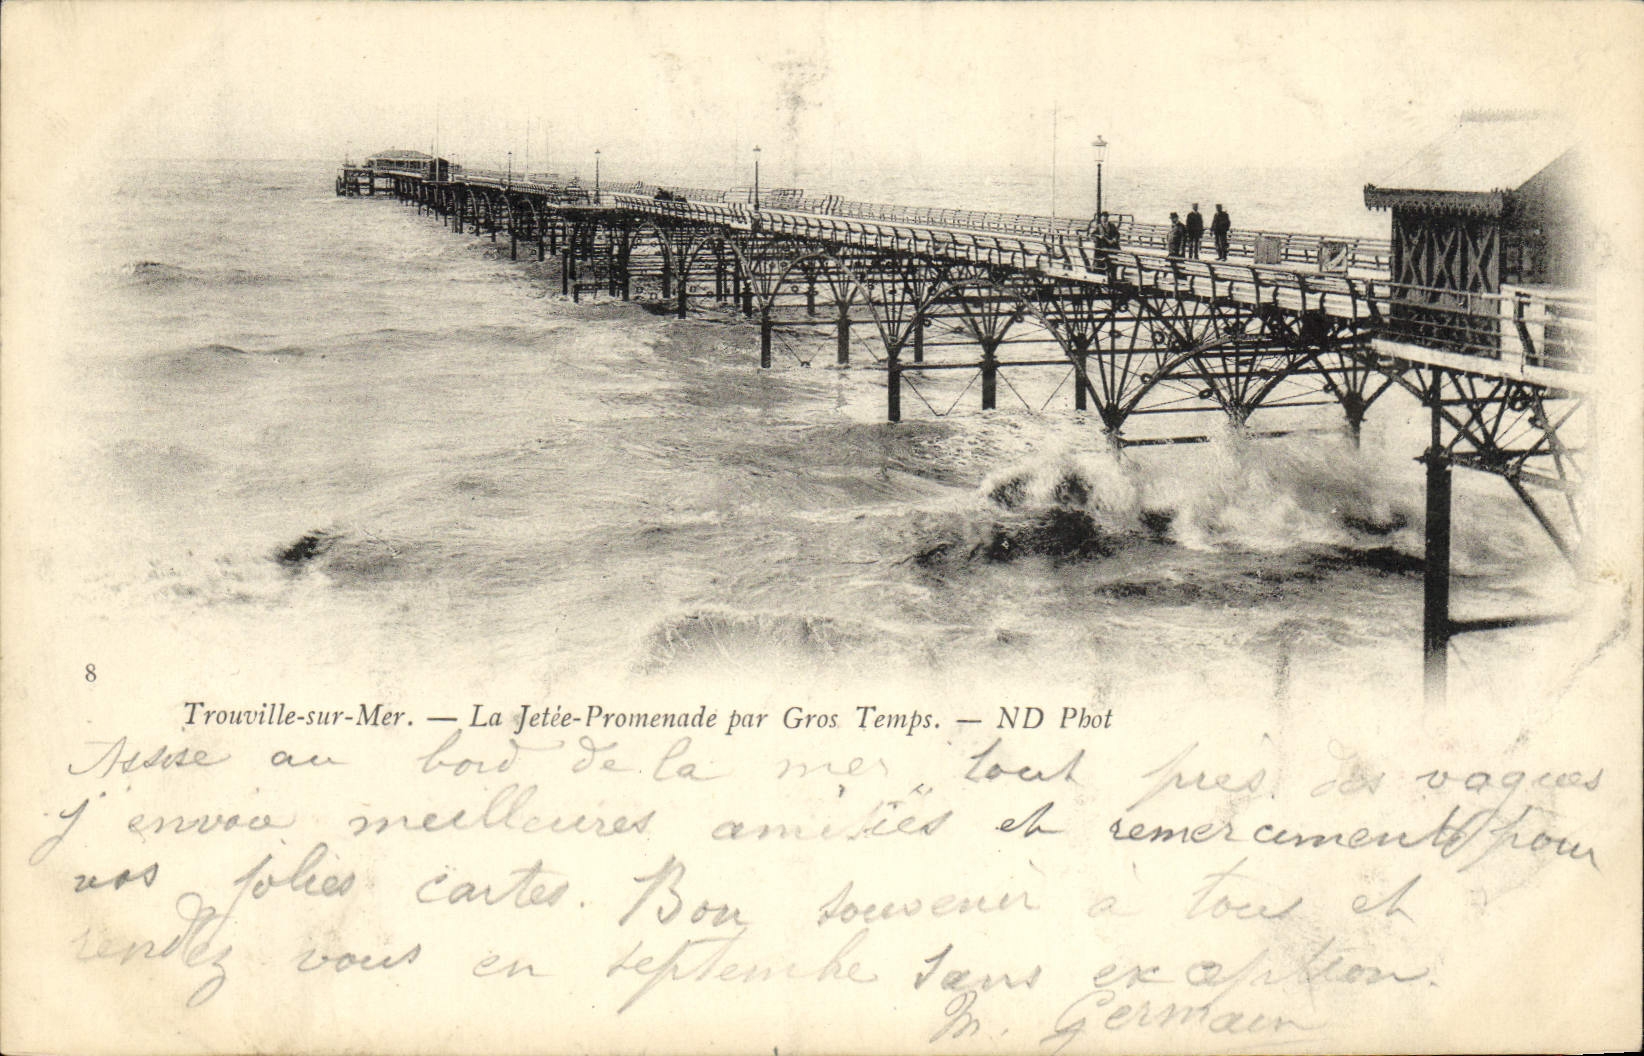 8
Trouville-sur-Mer. — La Jetée-Promenade par Gros Temps. — ND Phot
Assise au bord de la mer, tout près des vagues
j'envoie meilleures amitiés et remerciments pour
vos jolies cartes. Bon souvenir à tous et
rendez vous en septembre sans exception.
M. Germain